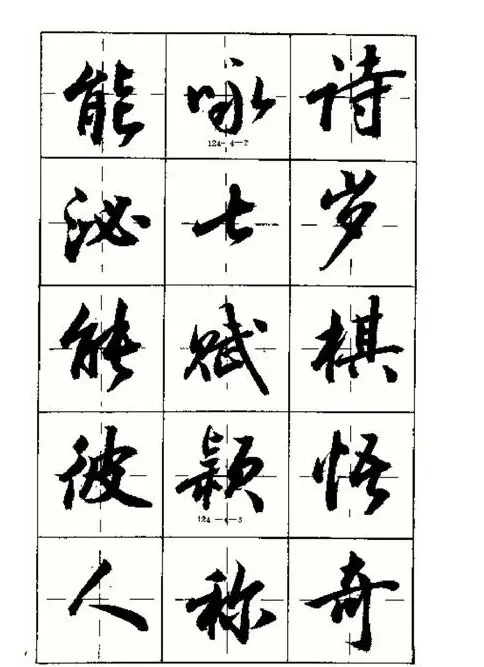 能咏诗
124-4-2
泌七岁
能赋棋
彼颖悟
124-4-3
人称奇